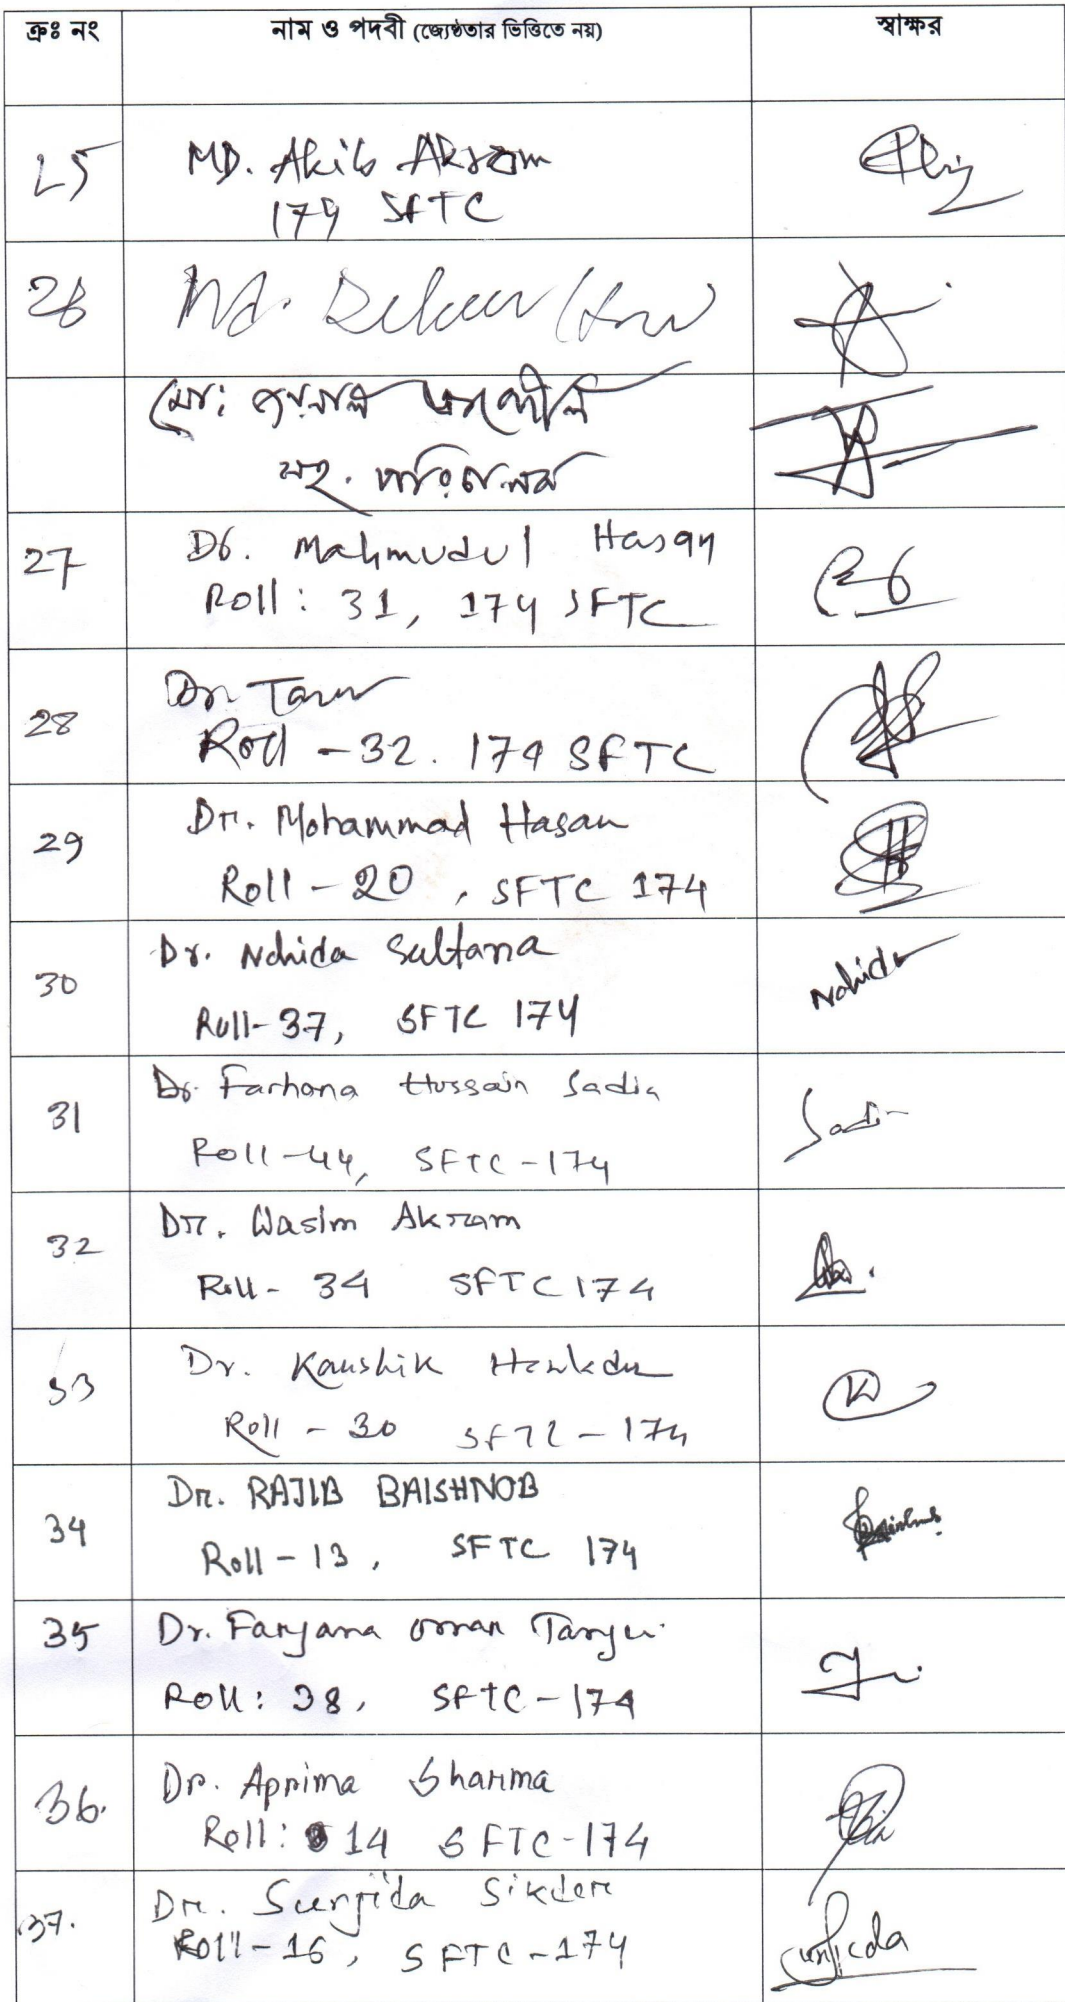 ক্রঃ নং নাম ও পদবী (জ্যেষ্ঠতার ভিত্তিতে নয়) স্বাক্ষর
25 MD. Akib Akram
174 SFTC
26 Md.
মোঃ
সহ. পরিচালক
27 Dr. Mahmudul Hasan
Roll: 31, 174 SFTC
28 Dr.
Roll - 32. 174 SFTC
29 Dr. Mohammad Hasan
Roll - 20, SFTC 174
30 Dr. Nahida Sultana Nahida
Roll-37, SFTC 174
31 Dr. Farhana Hussain Sadia Sadia
Roll-44, SFTC-174
32 Dr. Wasim Akram
Roll- 34 SFTC 174
33 Dr. Kaushik
Roll - 30 SFTC - 174
34 Dr. RAJIB BAISHNOB
Roll-13, SFTC 174
35 Dr. Farjana
Roll: 38, SFTC-174
36. Dr. Aprima Sharma
Roll: 14 SFTC-174
37. Dr. Sunjida Sikder Sunjida
Roll-16, SFTC-174